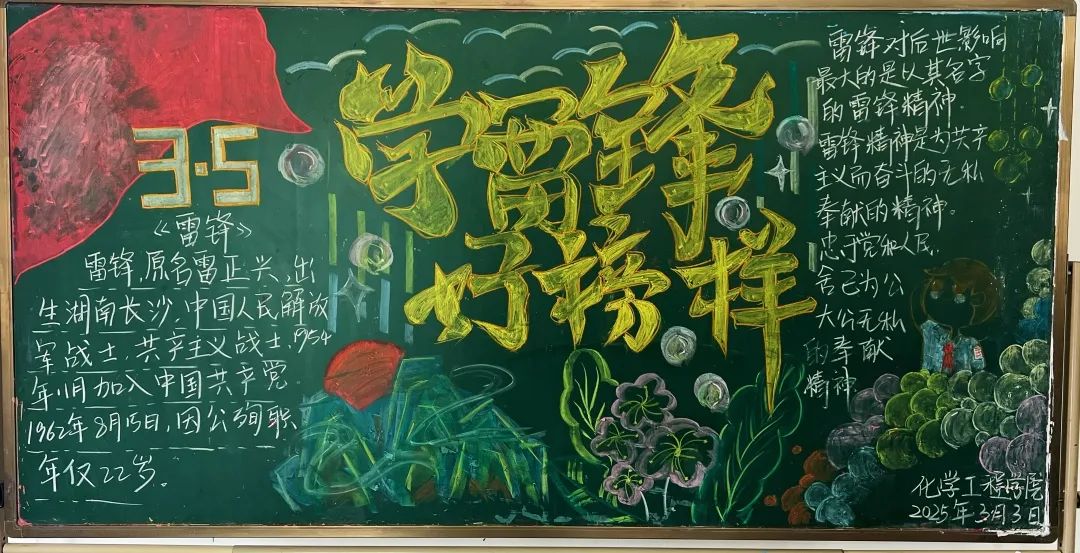 3·5
学雷锋
好榜样
《雷锋》
雷锋,原名雷正兴,出
生湖南长沙,中国人民解放
军战士,共产主义战士,1954
年,11月加入中国共产党.
1962年8月15日,因公殉职
年仅22岁。
雷锋对后世影响
最大的是以其名字
的雷锋精神.
雷锋精神是为共产
主义而奋斗的无私
奉献的精神。
忠于党和人民.
舍己为公
大公无私
的奉献
精神
化学工程学院
2025年3月3日